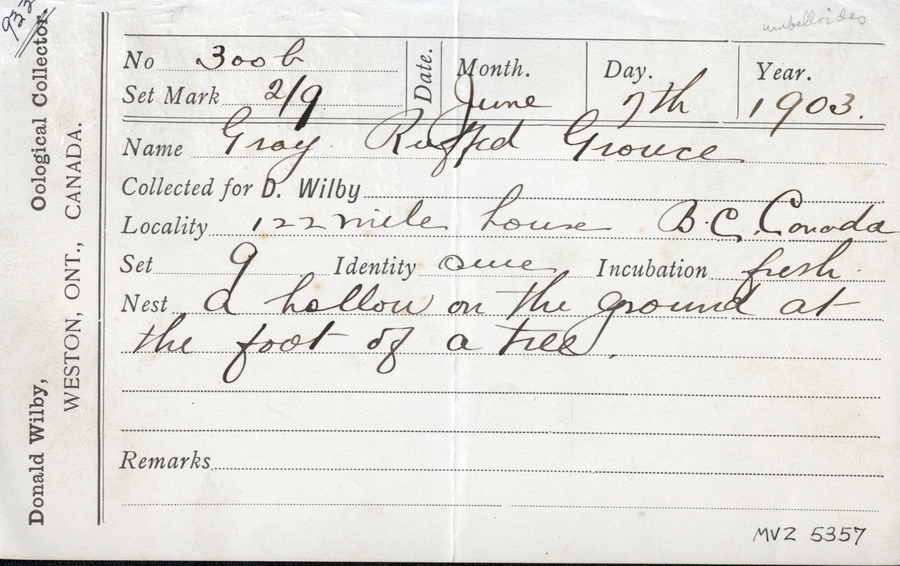 932
umbelloides
Donald Wilby, Oological Collector.
WESTON, ONT., CANADA.
No 300b Date. Month. Day. Year.
Set Mark 2/9 June 7th 1903.
Name Gray Ruffed Grouce
Collected for D. Wilby
Locality 122 mile house B.C. Canada
Set 9 Identity Incubation fresh.
Nest a hollow on the ground at
the foot of a tree.
Remarks
MVZ 5357